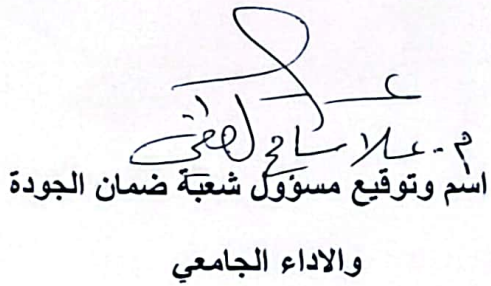 م. علا سامح
اسم وتوقيع مسؤول شعبة ضمان الجودة
والاداء الجامعي